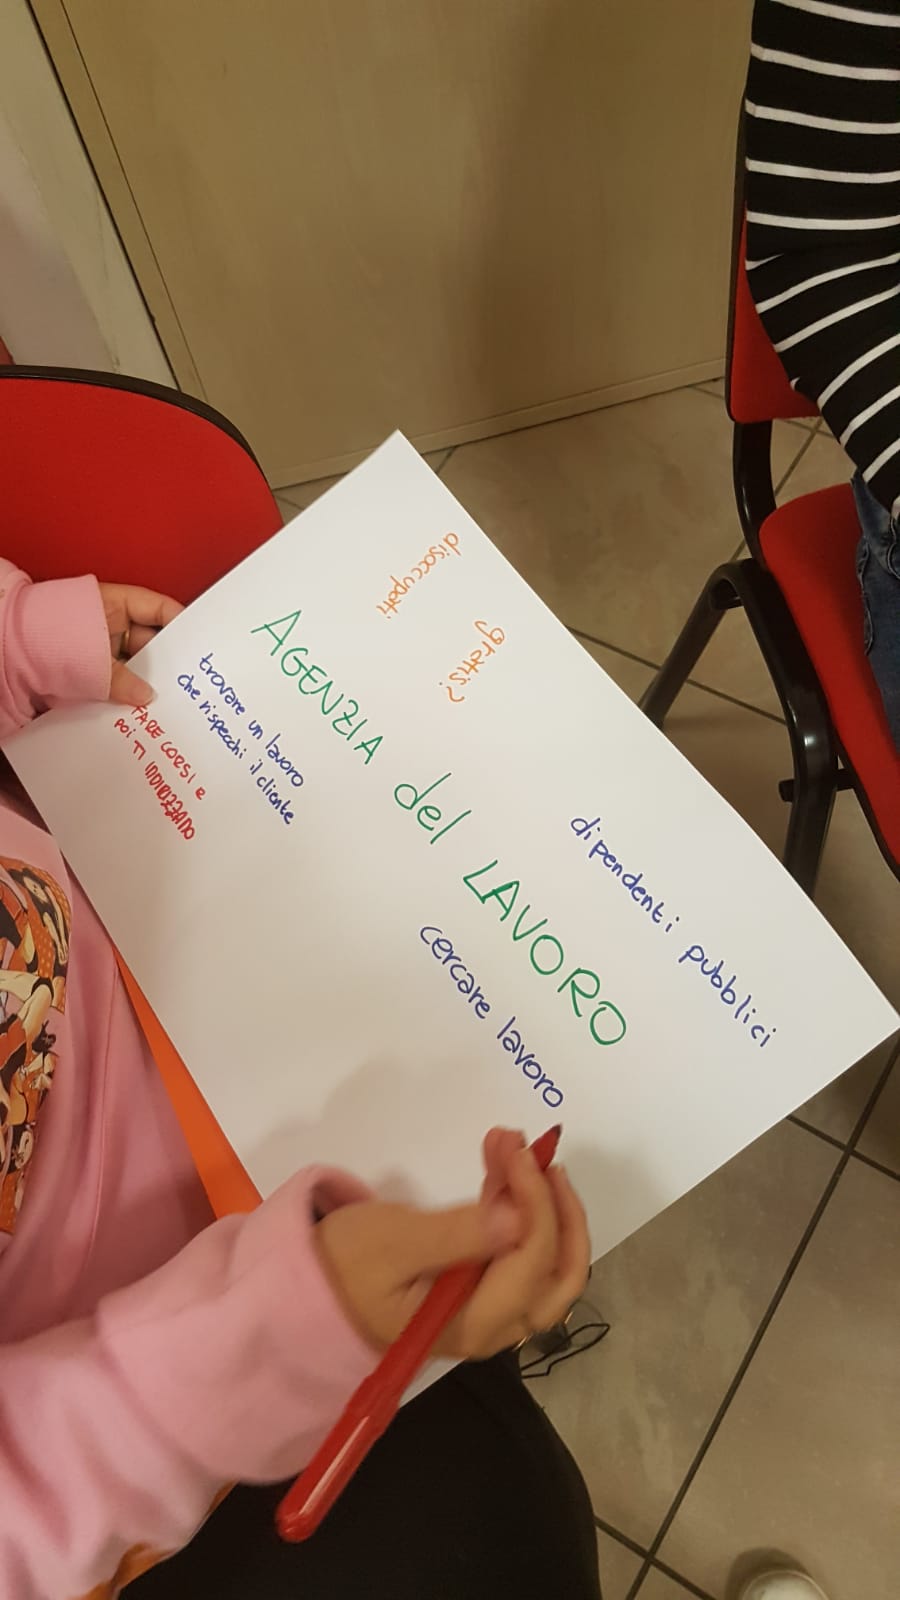 disoccupati
gratis?
dipendenti pubblici
AGENZIA del LAVORO
trovare un lavoro
che rispecchi il cliente
cercare lavoro
FARE CORSI e
POI TI INDIRIZZANO